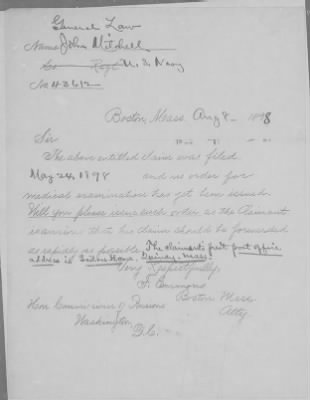 General Law
Name John Mitchell
Co Regt U. S. Navy
No 43612
Boston, Mass. Aug 8 1898
Sir
The above entitled claim was filed
May 24, 1898 and no order for
medical examination has yet been issued.
Will you please issue such order as the Claimant
is anxious that his claim should be forwarded
as rapidly as possible. The claimant's post office
address is Sailors Home, Quincy, Mass.
Very Respectfully,
Emmons
Boston Mass.
Atty
Hon Commissioner of Pensions
Washington,
D.C.